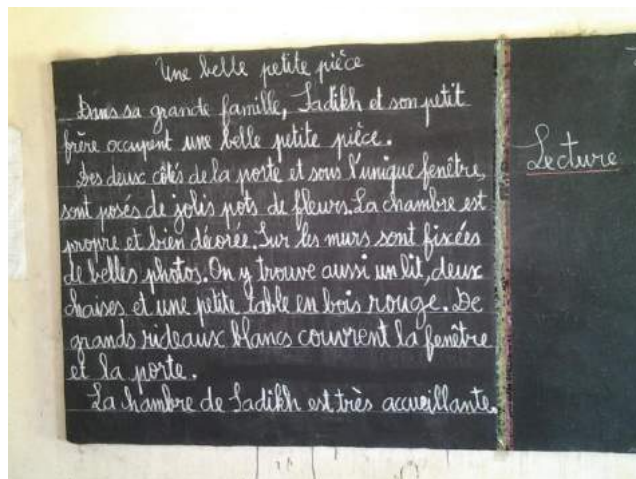 Une belle petite pièce
Dans sa grande famille, Sadikh et son petit
frère occupent une belle petite pièce.
Des deux côtés de la porte et sous l'unique fenêtre,
sont posés de jolis pots de fleurs. La chambre est
propre et bien décorée. Sur les murs sont fixées
de belles photos. On y trouve aussi un lit, deux
chaises et une petite table en bois rouge. De
grands rideaux blancs couvrent la fenêtre
et la porte.
La chambre de Sadikh est très accueillante.
Lecture